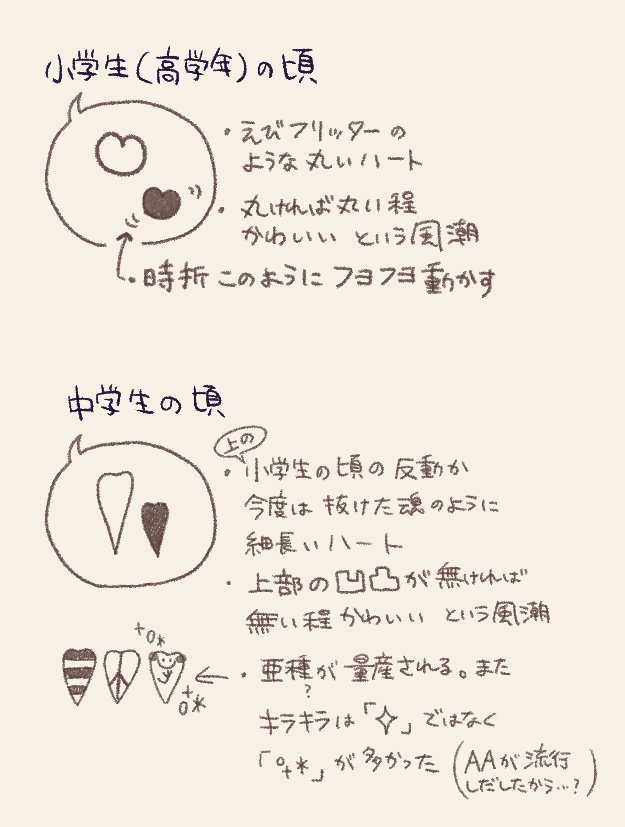 小学生(高学年)の頃
・えびフリッターの
ような丸いハート
・丸ければ丸い程
かわいい という風潮
・時折 このように フヨフヨ動かす
中学生の頃
上の
・小学生の頃の反動か
今度は 抜けた魂のように
細長いハート
・上部の凹凸が無ければ
無い程かわいい という風潮
+o*
+
o*
・亜種が量産される。また
?
キラキラは「✧」ではなく
「°+*」が多かった (AAが流行
しだしたから…?)